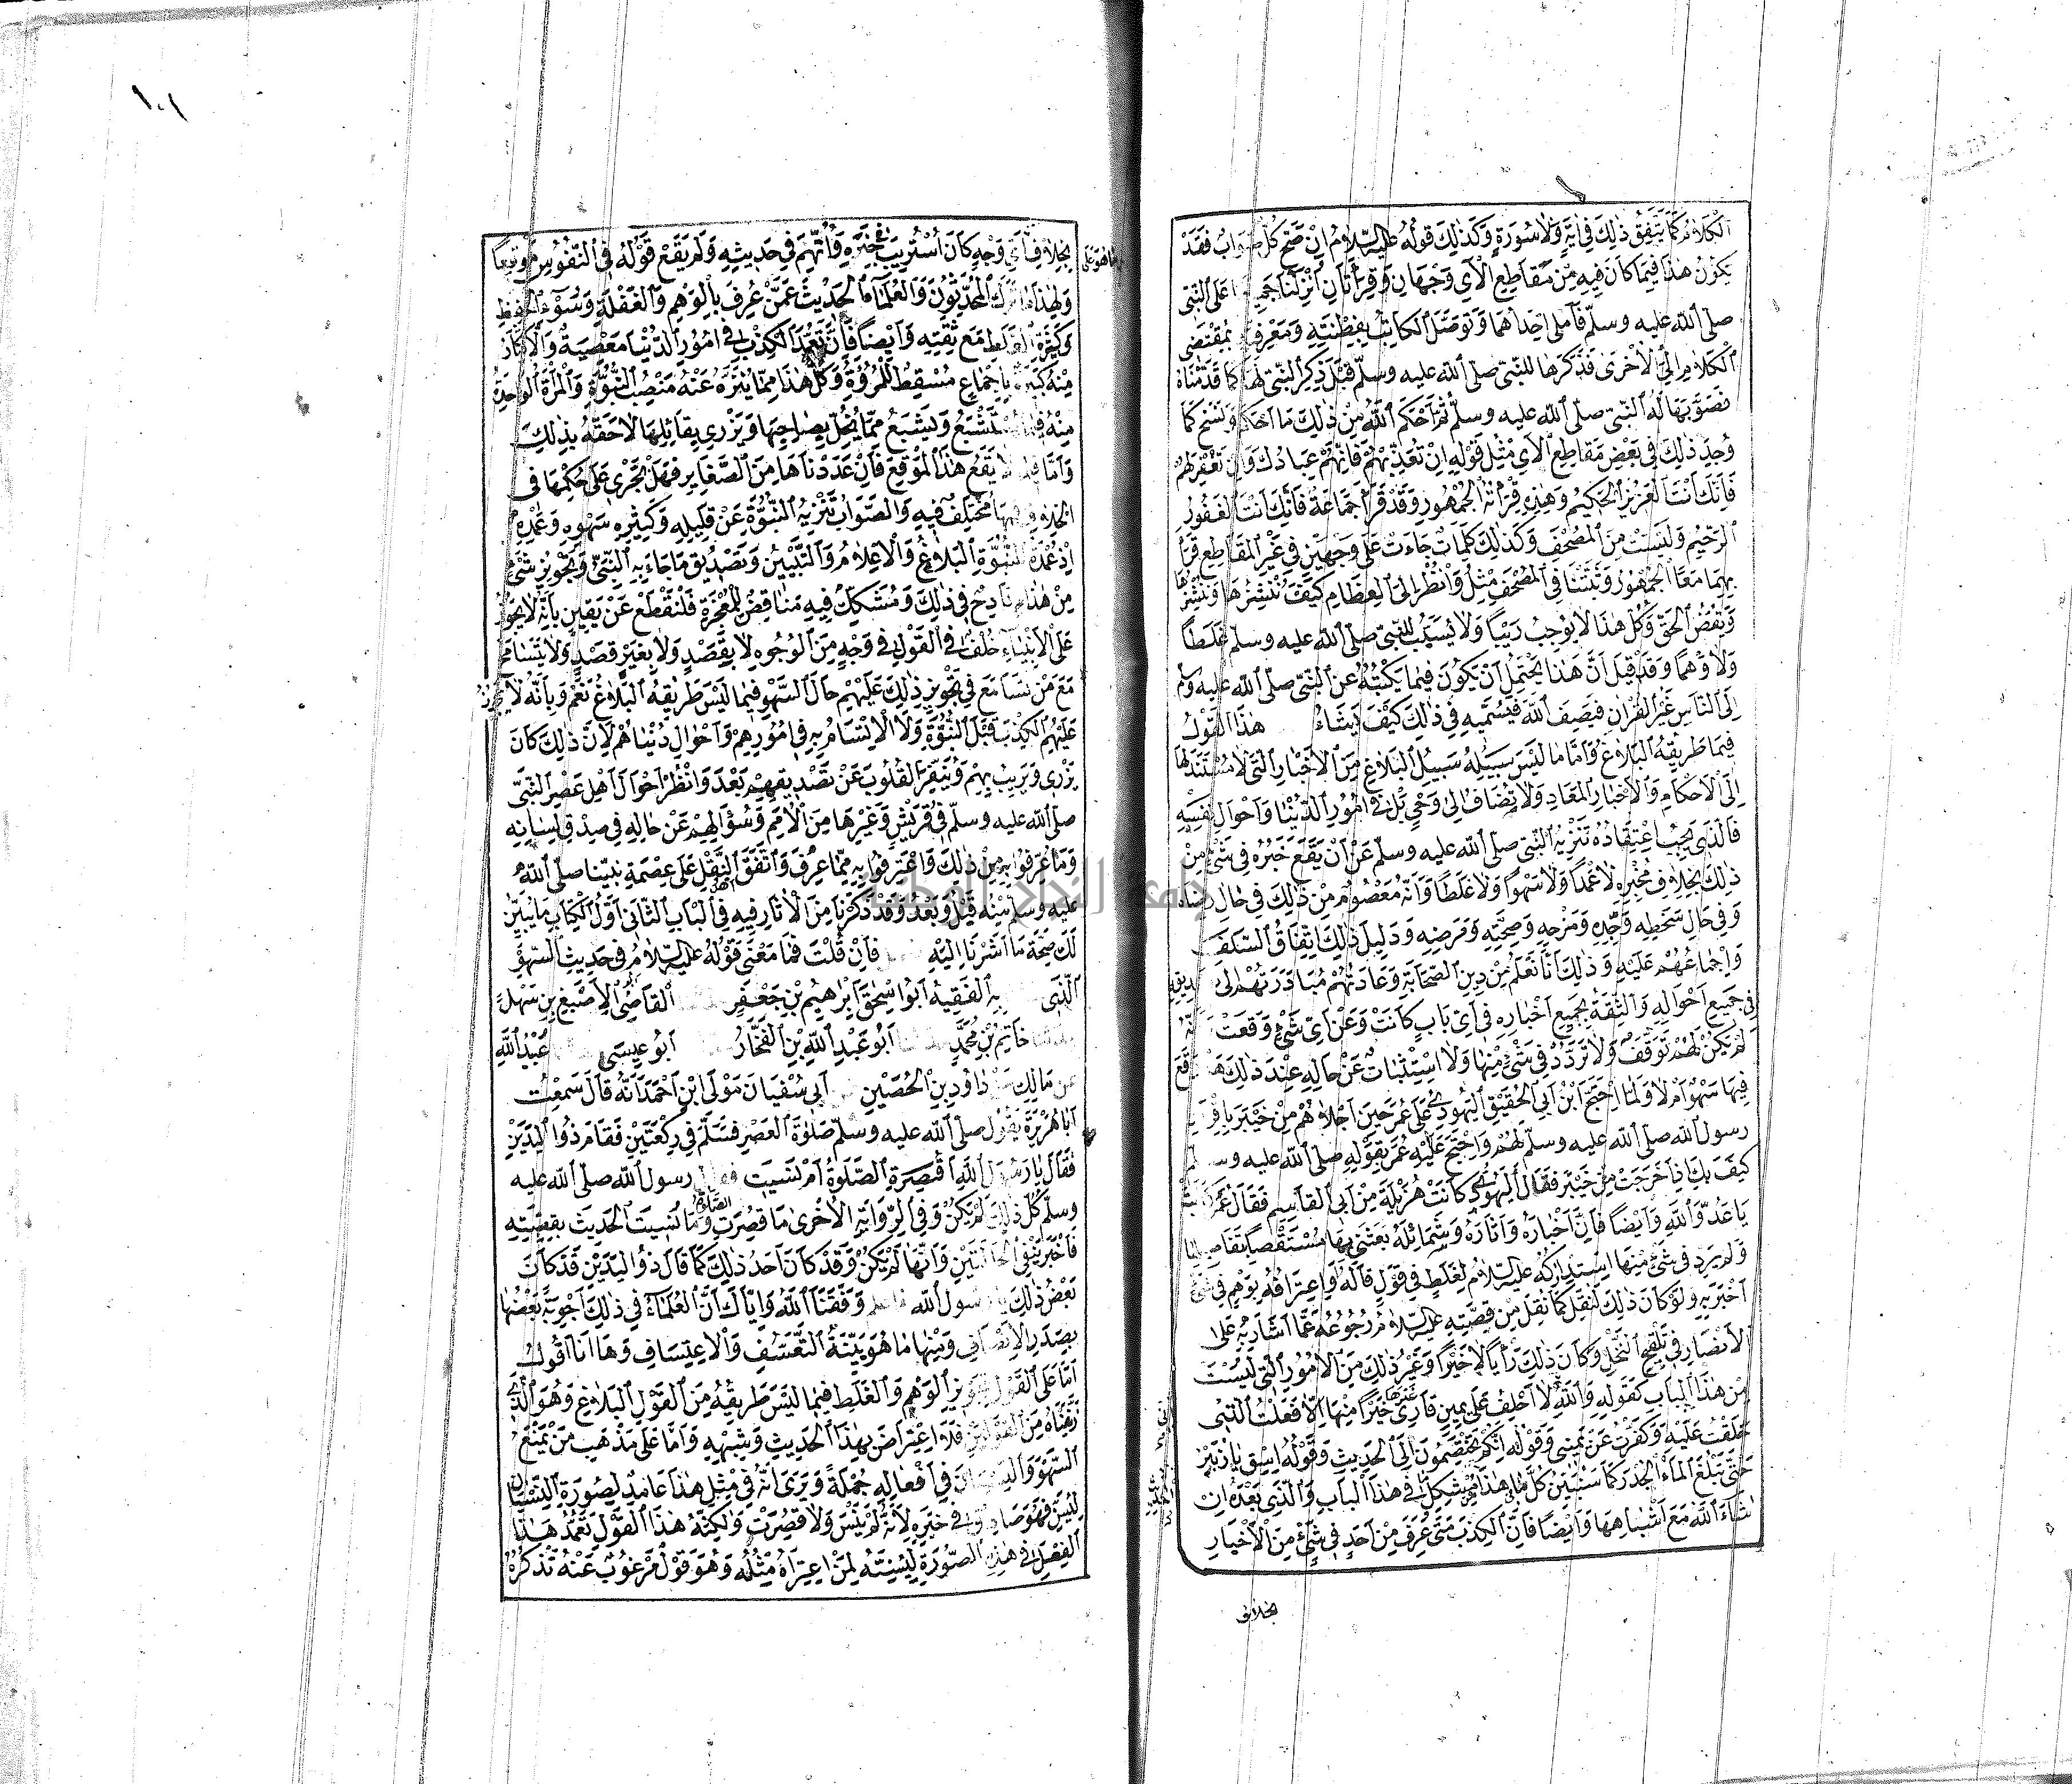 الكلام كما يتفق ذلك في اية ولا سورة وكذلك قوله عليه السلام ان صح كل صواب فقد
يكون هذا فيما كان فيه من مقاطع الاي وجهان وقراتان انزلتا جميعا على النبي
صلى الله عليه وسلم فاملى احداهما وتوصل الكاتب بفطنته ومعرفته بمقتضى
الكلام الى الاخرى فذكرها للنبي صلى الله عليه وسلم قبل ذكر النبي لها كما قدمناه
فصوبها له النبي صلى الله عليه وسلم ثم احكم الله من ذلك ما احكم ونسخ كما
وجد ذلك في بعض مقاطع الاي مثل قوله ان تعذبهم فانهم عبادك وان تغفر لهم
فانك انت العزيز الحكيم وهذه قراة الجمهور وقد قرا جماعة فانك انت الغفور
الرحيم وليست من المصحف وكذلك كلمات جاءت على وجهين في غير المقاطع قرا
بهما معا الجمهور وثبتتا في المصحف مثل وانظر الى العظام كيف ننشرها وننشزها
ويقض الحق وكل هذا لا يوجب ريبا ولا يسبب للنبي صلى الله عليه وسلم غلطا
ولا وهما وقد قيل ان هذا يحتمل ان يكون فيما يكتبه عن النبي صلى الله عليه وسلم
الى الناس غير القران فيصف الله فيسميه في ذلك كيف يشاء هذا القول
فيما طريقه البلاغ واما ما ليس سبيله سبيل البلاغ من الاخبار التي لا مستند لها
الى الاحكام والاخبار المعاد ولا تضاف الى وحي بل في امور الدنيا واحوال نفسه
فالذي يجب اعتقاده تنزيه النبي صلى الله عليه وسلم عن ان يقع خبره في شئ من
ذلك بخلاف مخبره لا عمدا ولا سهوا ولا غلطا وانه معصوم من ذلك في حال رضاه
وفي حال سخطه وجده ومزحه وصحته ومرضه ودليل ذلك اتفاق السلف
واجماعهم عليه وذلك انا نعلم من دين الصحابة وعادتهم مبادرتهم الى تصديق
في جميع احواله والثقة بجميع اخباره في اي باب كانت وعن اي شئ وقعت
لم يكن لهم توقف ولا تردد في شئ منها ولا استثبات عن حاله عند ذلك هل وقع
فيها سهو ام لا ولما احتج ابن ابي الحقيق اليهودي على عمر حين اجلاهم من خيبر باقرار
رسول الله صلى الله عليه وسلم لهم واحتج عليه عمر بقوله صلى الله عليه وسلم
كيف بك اذا خرجت من خيبر فقال اليهودي كانت هزيلة من ابي القاسم فقال عمر كذبت
يا عدو الله وايضا فان اخباره واثاره وشمائله معتنى بها مستقصيا تفاصيلها
ولم يرد في شئ منها استدراكه عليه السلام لغلط في قول قاله او اعترافه بوهم في شئ
اخبر به ولو كان ذلك لنقل كما نقل من قصته عليه السلام رجوعه عما اشار به على
الانصار في تلقيح النخل وكان ذلك رايا لا خبرا وغير ذلك من الامور التي ليست
من هذا الباب كقوله والله لا احلف على يمين فارى غيرها خيرا منها الا فعلت الذي
حلفت عليه وكفرت عن يميني وقوله انكم تختصمون الي الحديث وقوله اسق يا زبير
حتى يبلغ الماء الجدر كما سنبين كل ما في هذا من مشكل في هذا الباب والذي بعده ان
شاء الله مع اشباهها وايضا فان الكذب متى عرف من احد في شئ من الاخبار
بخلاف
بخلاف ما هو على اي وجه كان استريب في خبره واتهم في حديثه ولم يقع قوله في النفوس موقعا
ولهذا ترك المحدثون والعلماء الحديث عمن عرف بالوهم والغفلة وسوء الحفظ
وكثرة الغلط مع ثقته وايضا فان تعمد الكذب في امور الدنيا معصية والاكثار
منه كبيرة باجماع مسقط للمروة وكل هذا مما ينزه عنه منصب النبوة والمرة الواحدة
منه فيما يستشنع ويشيع مما يخل بصاحبها ويزري بقائلها لاحقة بذلك
واما فيما لا يقع هذا الموقع فان عددناها من الصغاير فهل تجري على حكمها في
الخلاف فيها مختلف فيه والصواب تنزيه النبوة عن قليله وكثيره سهوه وعمده
اذ عمدة النبوة البلاغ والاعلام والتبيين وتصديق ما جاء به النبي وتجويز شئ
من هذا قادح في ذلك ومشكك فيه مناقض للمعجزة فلنقطع عن يقين بانه لا يجوز
على الانبياء خلف في القول في وجه من الوجوه لا بقصد ولا بغير قصد ولا نتسامح
مع من تسامح في تجويز ذلك عليهم حال السهو فيما ليس طريقه البلاغ نعم وبانه لا يجوز
عليهم الكذب قبل النبوة ولا الاتسام به في امورهم واحوال دنياهم لان ذلك كان
يزري ويريب بهم وينفر القلوب عن تصديقهم بعد وانظر احوال اهل عصر النبي
صلى الله عليه وسلم في قريش وغيرها من الامم وسؤالهم عن حاله في صدق لسانه
وما عرفوا به من ذلك واعترفوا به مما عرف واتفق النقل على عصمة نبينا صلى الله
عليه وسلم منه قبل وبعد وقد ذكرنا من الاثار فيه في الباب الثاني اول الكتاب ما يبين
لك صحة ما اشرنا اليه فان قلت فما معنى قوله عليه السلام في حديث السهو
الذي به الفقيه ابو اسحق ابراهيم بن جعفر القاضي الاصبغ بن سهل
حاتم بن محمد ابو عبد الله بن الفخار ابو عيسى عبيد الله
عن مالك داود بن الحصين ابي سفيان مولى ابن احمد انه قال سمعت
ابا هريرة يقول صلى الله عليه وسلم صلوة العصر فسلم في ركعتين فقام ذو اليدين
فقال يا رسول الله اقصرة الصلوة ام نسيت فقال رسول الله صلى الله عليه
وسلم كل ذلك لم يكن وفي الرواية الاخرى ما قصرت الصلوة وما نسيت الحديث بقصته
فاخبر بنفي الحالتين وانها لم يكن وقد كان احد ذلك كما قال ذو اليدين قد كان
بعض ذلك يا رسول الله فاعلم وفقنا الله واياك ان العلماء في ذلك اجوبة بعضها
بصدد الانصاف ومنها ما هو بينة التعسف والاعتساف وها انا اقول
اما على القول بتجويز الوهم والغلط فيما ليس طريقه من القول البلاغ وهو الذي
زيفناه من القولين فلا اعتراض بهذا الحديث وشبهه واما على مذهب من يمنع
السهو والنسيان في افعاله جملة ويرى انه في مثل هذا عامد لصورة النسيان
ليسن فهو صادق في خبره لانه لم ينس ولا قصرت ولكنه هذا القول تعمد هذا
الفعل في هذه الصورة ليسنه لمن اعتراه مثله وهو قول مرغوب عنه نذكره
١٠١
جامعة النجاح الوطنية